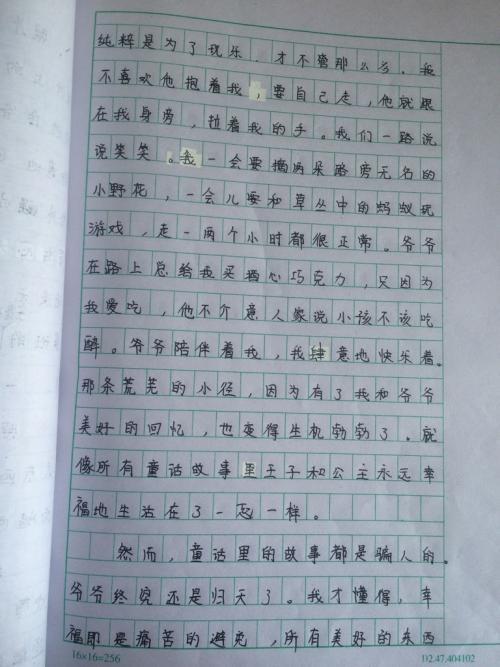 纯粹是为了玩乐，才不管那么多。我
不喜欢他抱着我，要自己走，他就跟
在我身旁，拉着我的手。我们一路说
说笑笑。我一会要摘两朵路旁无名的
小野花，一会儿要和草丛中的蚂蚁玩
游戏，走一两个小时都很正常。爷爷
在路上总给我买酒心巧克力，只因为
我爱吃，他不介意人家说小该不该吃
醉。爷爷陪伴着我，我肆意地快乐着。
那条荒芜的小径，因为有了我和爷爷
美好的回忆，也变得生机勃勃了。就
像所有童话故事里王子和公主永远幸
福地生活在了一起一样。
然而，童话里的故事都是骗人的。
爷爷终究还是归天了。我才懂得，幸
福即是痛苦的避免，所有美好的东西
16×16=256
D2.47.404102